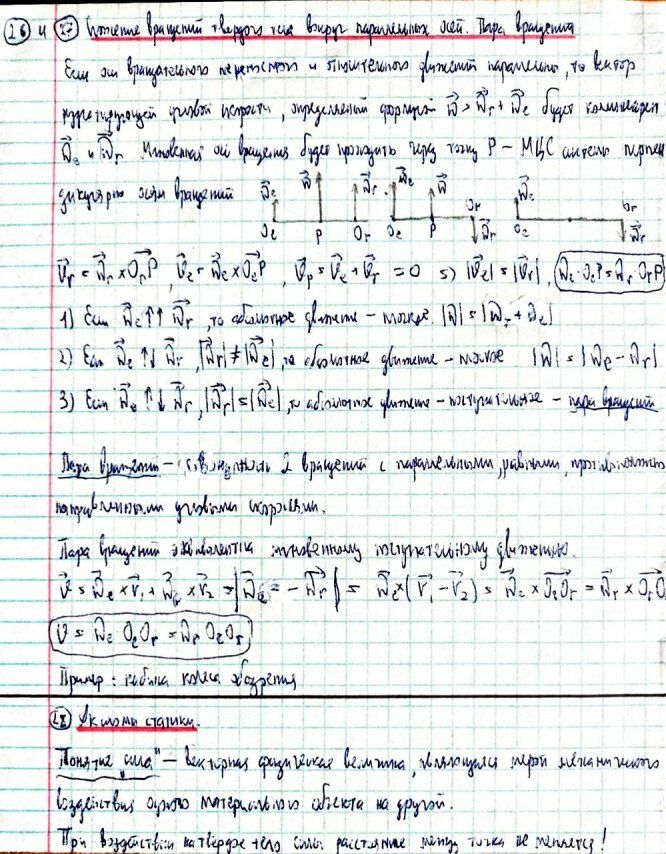 26 и 27 Сложение вращений твердого тела вокруг параллельных осей. Пара вращений
Если оси вращательного переносного и относительного движений параллельны, то вектор
результирующей угловой скорости, определяемый формулой ω⃗ = ω⃗r + ω⃗e будет коллинеарен
ω⃗e и ω⃗r. Мгновенная ось вращения будет проходить через точку P – МЦС системы перпен
дикулярно осям вращений
ω⃗e ω⃗ ω⃗r ω⃗e ω⃗ Or ω⃗e Or
Oe P Or Oe P ω⃗r Oe ω⃗r
v⃗r = ω⃗r × OrP, v⃗e = ω⃗e × OeP, v⃗p = v⃗e + v⃗r = 0 => |v⃗e| = |v⃗r|, ωe · OeP = ωr · OrP
1) Если ω⃗e ↑↑ ω⃗r, то абсолютное движение – плоское. |ω| = |ωr + ωe|
2) Если ω⃗e ↑↓ ω⃗r, |ω⃗r| ≠ |ω⃗e|, то абсолютное движение – плоское |ω| = |ωe – ωr|
3) Если ω⃗e ↑↓ ω⃗r, |ω⃗r| = |ω⃗e|, то абсолютное движение – поступательное – пара вращений
Пара вращений – совокупность 2 вращений с параллельными, равными, противоположно
направленными угловыми скоростями.
Пара вращений эквивалентна мгновенному поступательному движению.
v⃗ = ω⃗e × r⃗1 + ω⃗r × r⃗2 = |ω⃗e = – ω⃗r| = ω⃗e × (r⃗1 – r⃗2) = ω⃗e × OeOr = ω⃗r × OrO
v = ωe OeOr = ωr OeOr
Пример: кабина колеса обозрения
28 Аксиомы статики.
Понятие "сила" – векторная физическая величина, являющаяся мерой механического
воздействия одного материального объекта на другой.
При воздействии на твердое тело силы расстояние между точками не меняется!